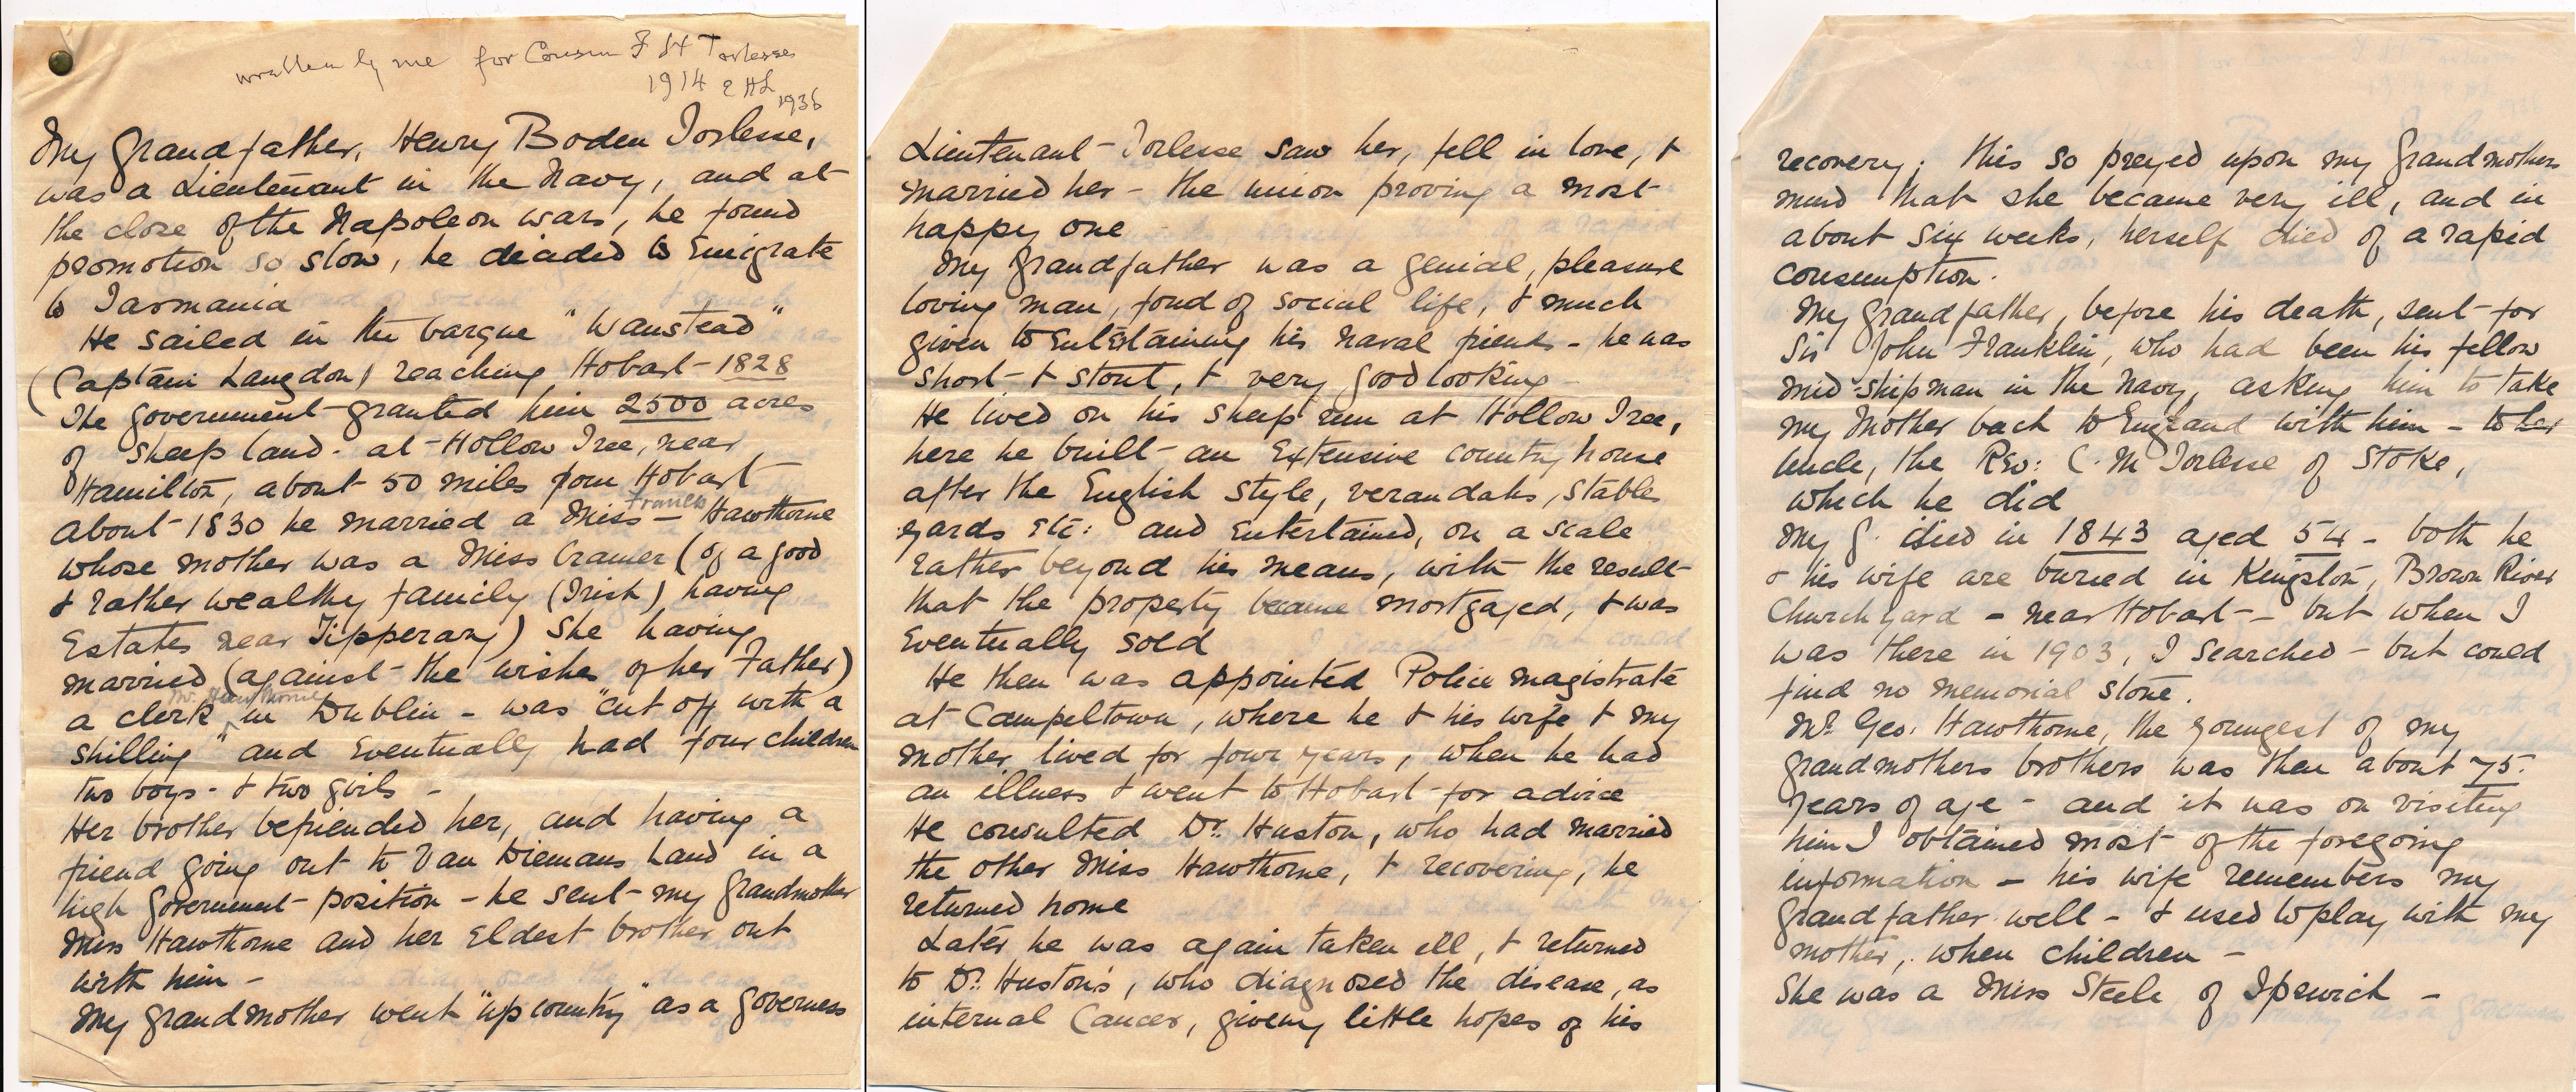 written by me for Cousin F H Torlesse
1914 E H L
1936
My Grandfather, Henry Boden Torlesse,
was a Lieutenant in the Navy, and at
the close of the Napoleon wars, he found
promotion so slow, he decided to Emigrate
to Tasmania
He sailed in the barque "Wanstead"
(Captain Langdon) reaching Hobart - 1828
The government granted him 2500 acres
of sheep land - at Hollow Tree, near
Hamilton, about 50 miles from Hobart
Frances
About 1830 he married a Miss — Hawthorne
whose mother was a Miss Cramer (of a good
& rather wealthy family (Irish) having
Estates near Tipperary) She having
married (against the wishes of her Father)
Mr. Hawthorne
a clerk in Dublin - was "cut off with a
shilling" and Eventually had four children
two boys - & two girls -
Her brother befriended her, and having a
friend going out to Van Diemans Land in a
high Government position - he sent my Grandmother
Miss Hawthorne and her Eldest brother out
with him -
My Grandmother went "up country" as a Governess
Lieutenant Torlesse saw her, fell in love, &
married her - the union proving a most
happy one
My Grandfather was a genial, pleasure
loving man, fond of social life, & much
given to Entertaining his Naval friends - he was
short & stout, & very good looking -
He lived on his sheep run at Hollow Tree,
here he built an Extensive country house
after the English style, verandahs, stables
yards Etc: and Entertained, on a scale
rather beyond his means, with the result
that the property became mortgaged, & was
Eventually sold
He then was appointed Police Magistrate
at Campeltown, where he & his wife & my
mother lived for four years, when he had
an illness & went to Hobart for advice
He consulted Dr. Huston, who had married
the other Miss Hawthorne, & recovering, he
returned home
Later he was again taken ill, & returned
to Dr. Huston's, who diagnosed the disease, as
internal Cancer, giving little hopes of his
recovery. this so preyed upon my Grandmothers
mind that she became very ill, and in
about six weeks, herself died of a rapid
consumption.
My Grandfather, before his death, sent for
Sir John Franklin, who had been his fellow
mid-shipman in the Navy, asking him to take
my Mother back to England with him - to her
Uncle, the Rev: C. M Torlesse of Stoke,
which he did
My G. died in 1843 aged 54 - both he
& his wife are buried in Kingston, Brown River
Churchyard - near Hobart - but when I
was there in 1903, I searched - but could
find no memorial stone.
Mr. Geo. Hawthorne, the youngest of my
grandmothers brothers was then about 75.
years of age - and it was on visiting
him I obtained most of the foregoing
information - his wife remembers my
grandfather well - & used to play with my
mother, when children -
She was a Miss Steele of Ipswich -